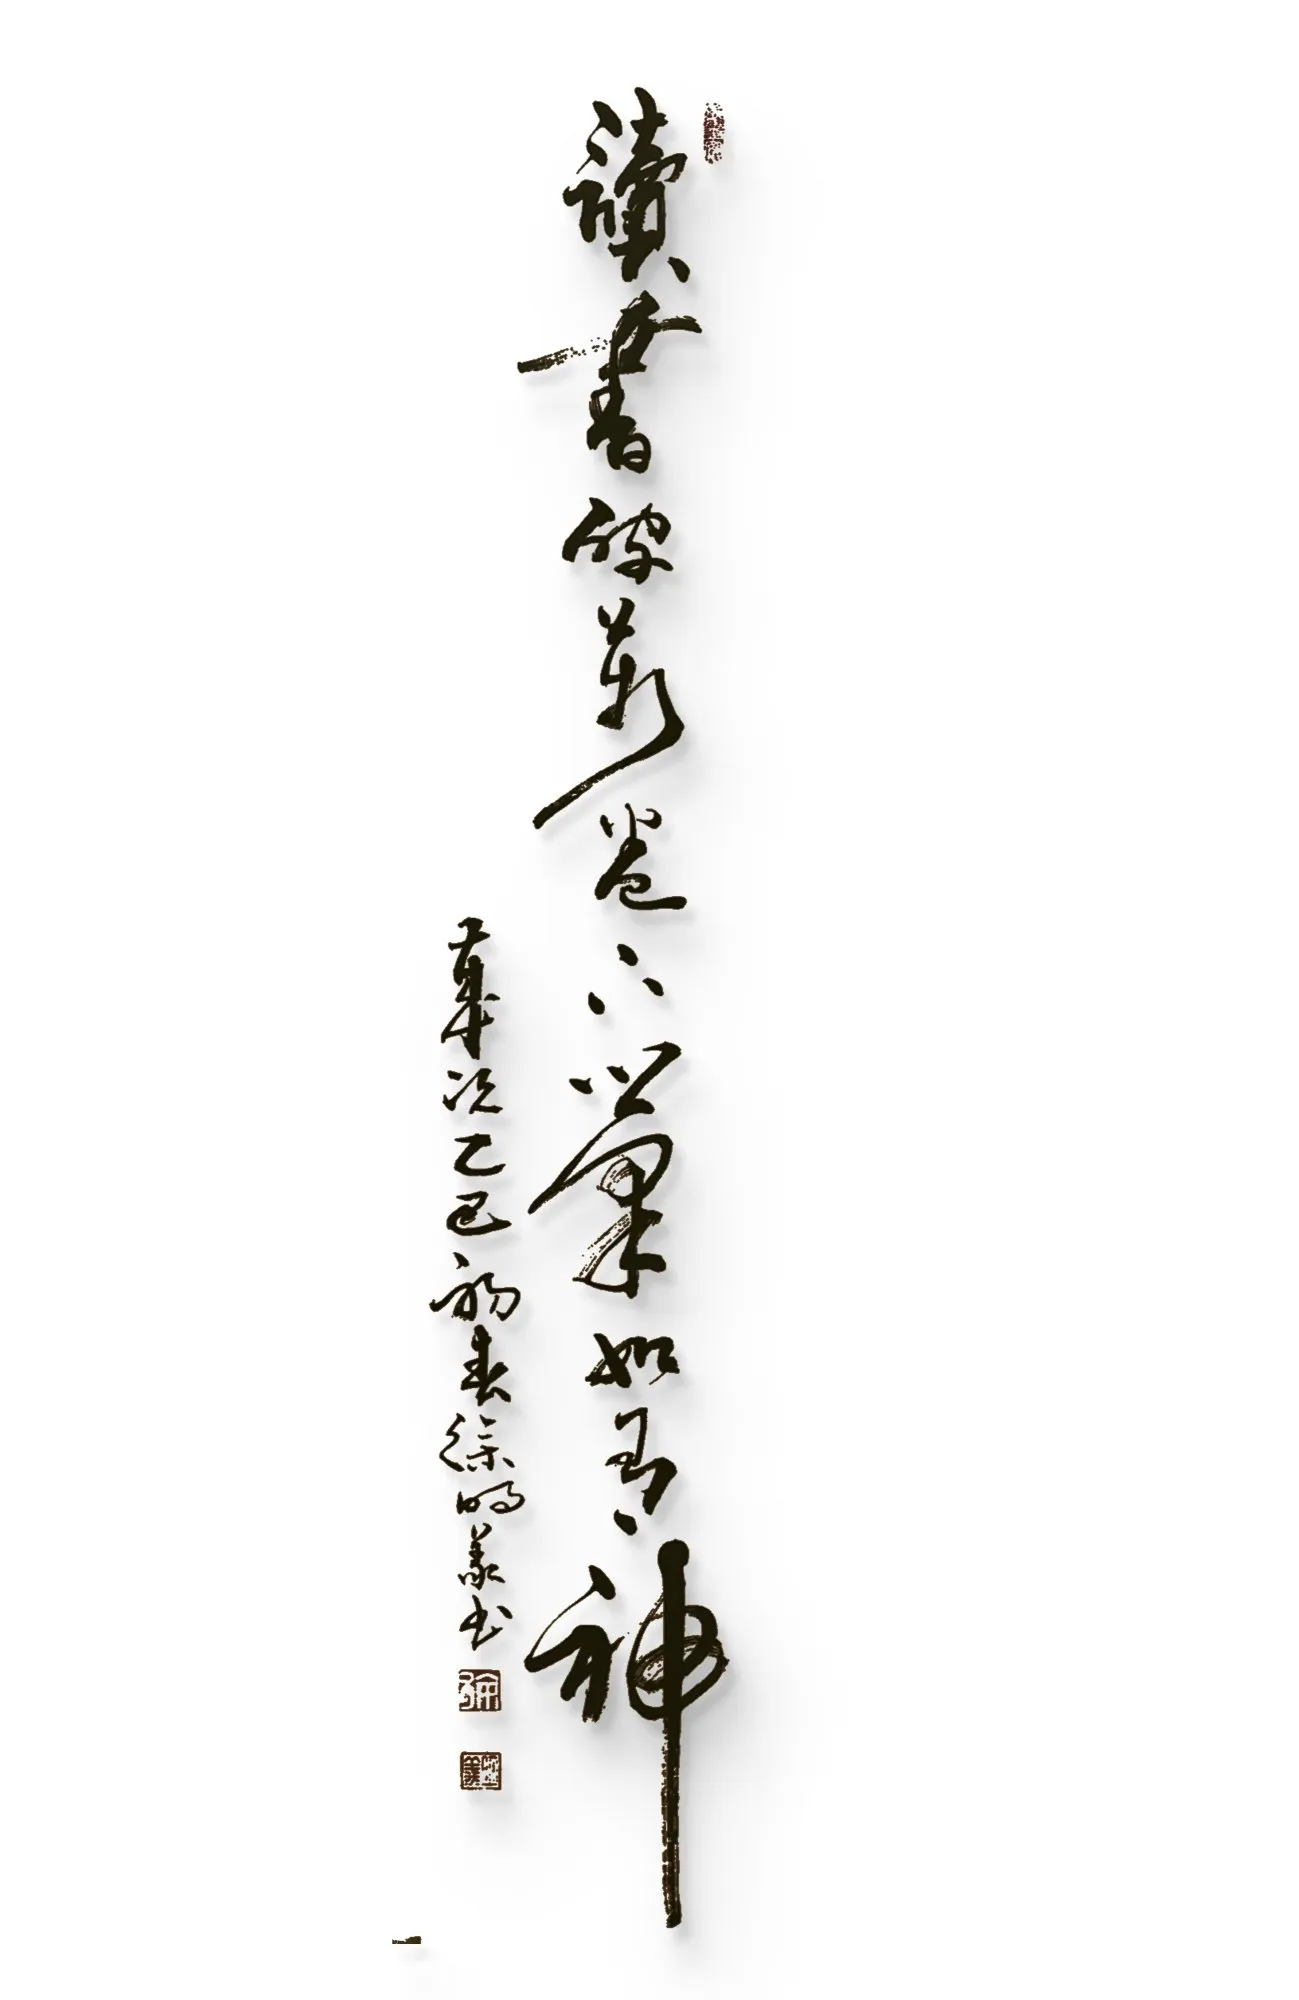 讀書破萬卷下筆如有神
歲次乙巳初春徐明義书